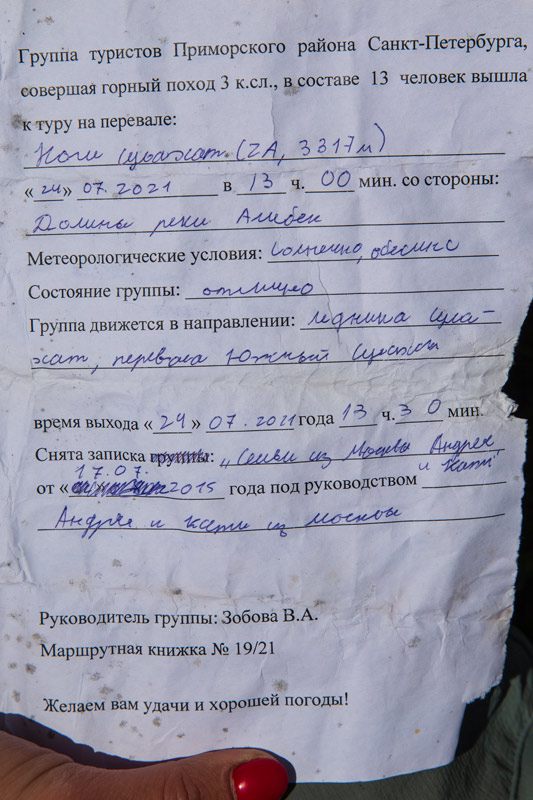 Группа туристов Приморского района Санкт-Петербурга,
совершая горный поход 3 к.сл., в составе 13 человек вышла
к туру на перевале:
Ноги Сулахат (2А, 3317м)
«24» 07.2021 в 13 ч. 00 мин. со стороны:
Долины реки Алибек
Метеорологические условия: Солнечно,
Состояние группы: отлично
Группа движется в направлении: ледника Сула-
хат, перевала Южный
время выхода «24» 07.2021 года 13 ч. 30 мин.
Снята записка группы: „Семьи из Москвы Андрея
и Кати"
17.07.
от « 2015 года под руководством
Андрея и Кати из Москвы
Руководитель группы: Зобова В.А.
Маршрутная книжка № 19/21
Желаем вам удачи и хорошей погоды!